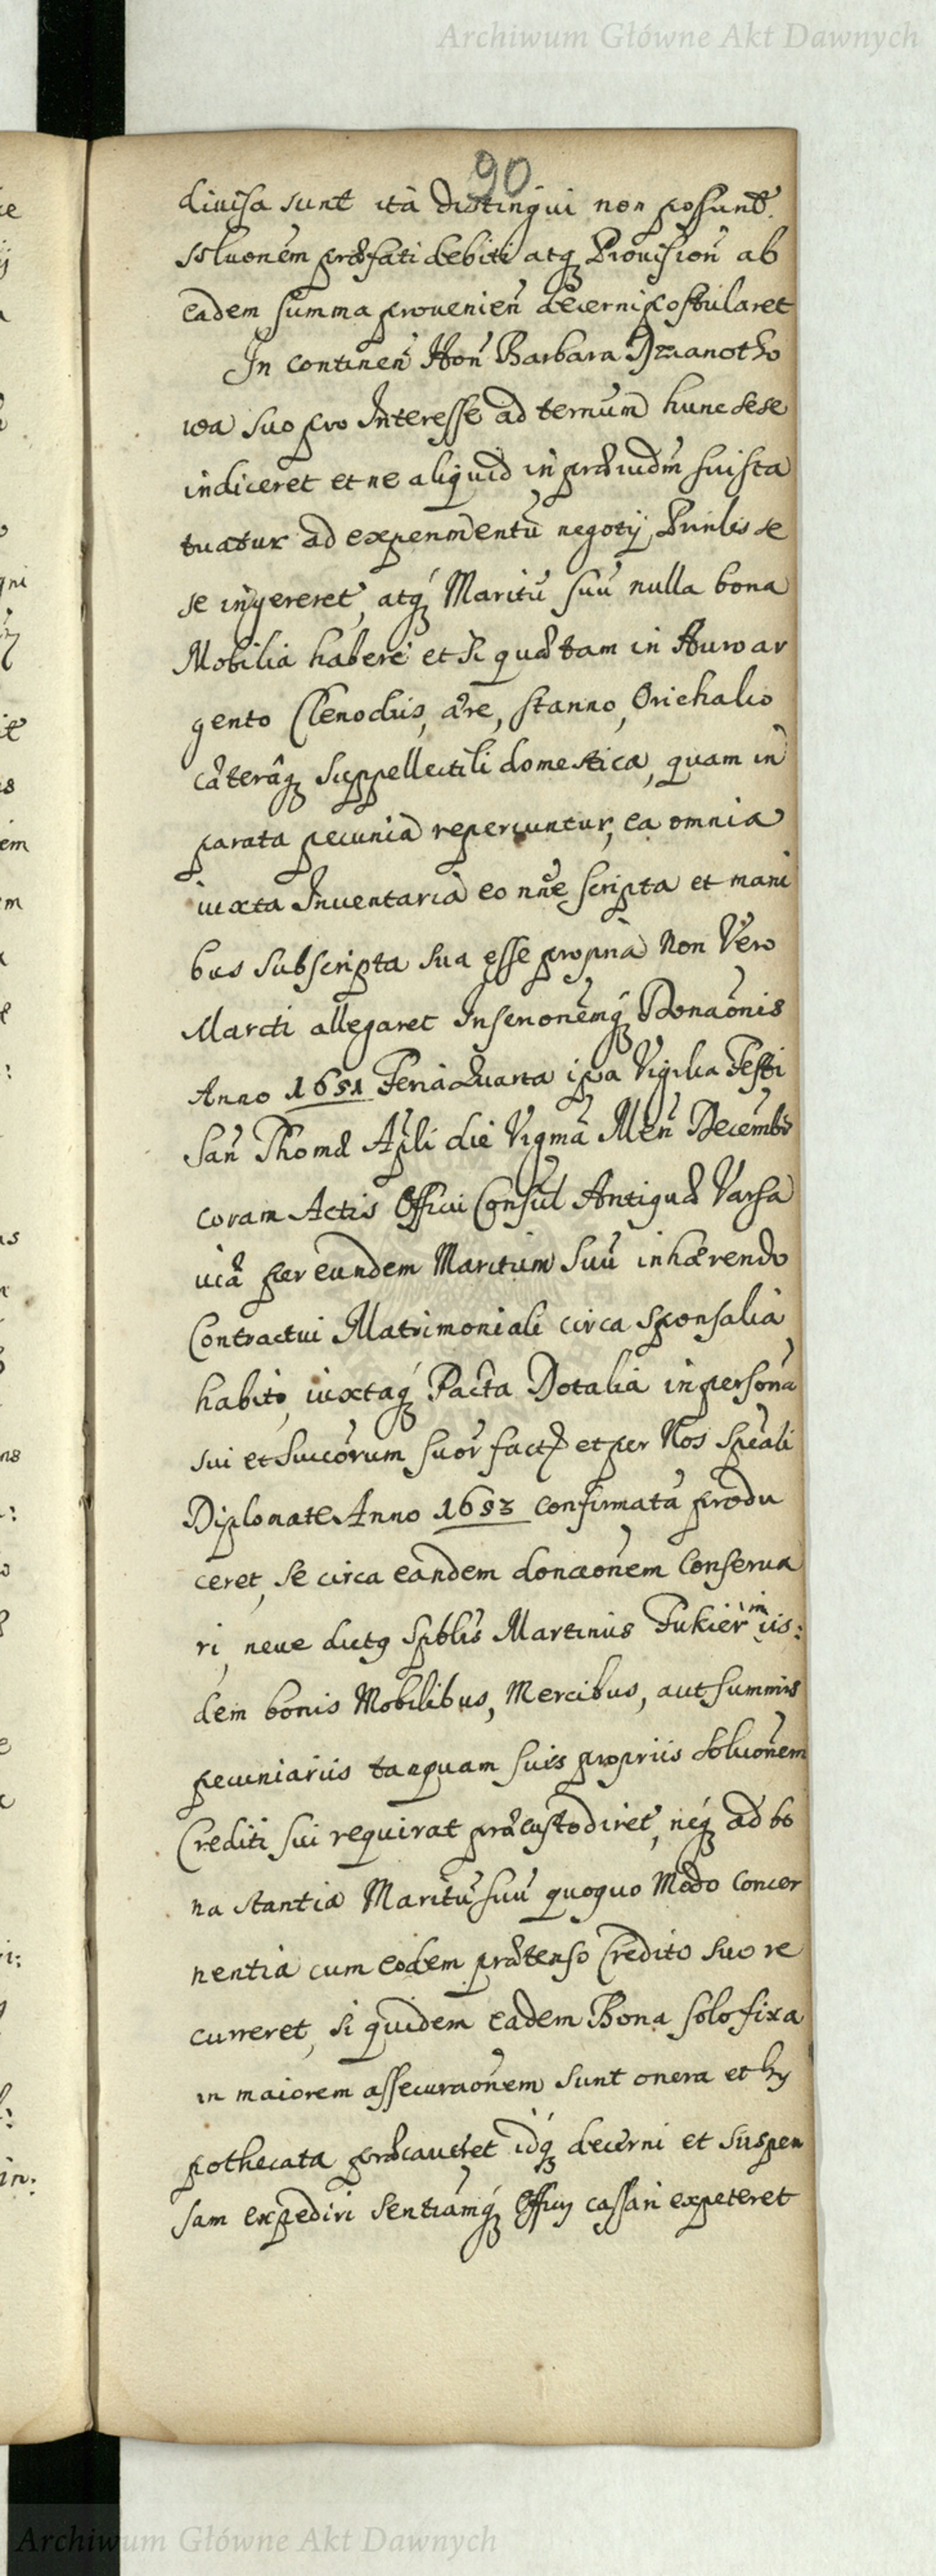 Archiwum Główne Akt Dawnych
90
divisa sunt ità distingui non possunt.
Soluonem præfati debiti atq Provision ab
eadem summa provenien decerni postularet
In continen Hon Barbara Dzianotho
wa suo pro Interesse ad ternum hunc sese
indiceret et ne aliquid in præiudm sui sta
tuatur ad experimentu negotij Prinlis se
se ingereret, atq Maritu suu nulla bona
Mobilia habere et si quæ tam in Auro ar
gento Clenodiis, ære, stanno, Orichalco
cæterâq suppellectili domestica, quam in
parata pecunia reperiuntur, ea omnia
iuxta Inventaria eo nne scripta et mani
bus subscripta sua esse propria non Vero
Mariti allegaret Insenonemq Donaonis
Anno 1651 Feria Quarta ipa Vigilia Festi
San Thomæ Apli die Vigma Men Decembr
coram Actis Officii Consul Antiquæ Varsa
viæ per eundem Maritum Suu inhærendo
Contractui Matrimoniali circa sponsalia
habito, iuxtaq Pacta Dotalia in persona
sui et Succorum suor fact et per Nos Speali
Diplomate Anno 1653 confirmata produ
ceret, se circa eandem donaonem Conserva
ri, neve dictg Spblis Martinus Fukier in iis:
dem bonis Mobilibus, Mercibus, aut summis
pecuniariis tanquam suis propriis Soluonem
Crediti sui requirat præcustodiret, neq ad bo
na stantia Maritu suu quoquo Modo Concer
nentia cum eodem prætenso Credito suo re
curreret, si quidem eadem Bona solo fixa
in maiorem assecuraonem sunt onera et hy
pothecata præcaveret idq decerni et suspen
sam expediri Sentiamq Officij cassari expeteret
Archiwum Główne Akt Dawnych